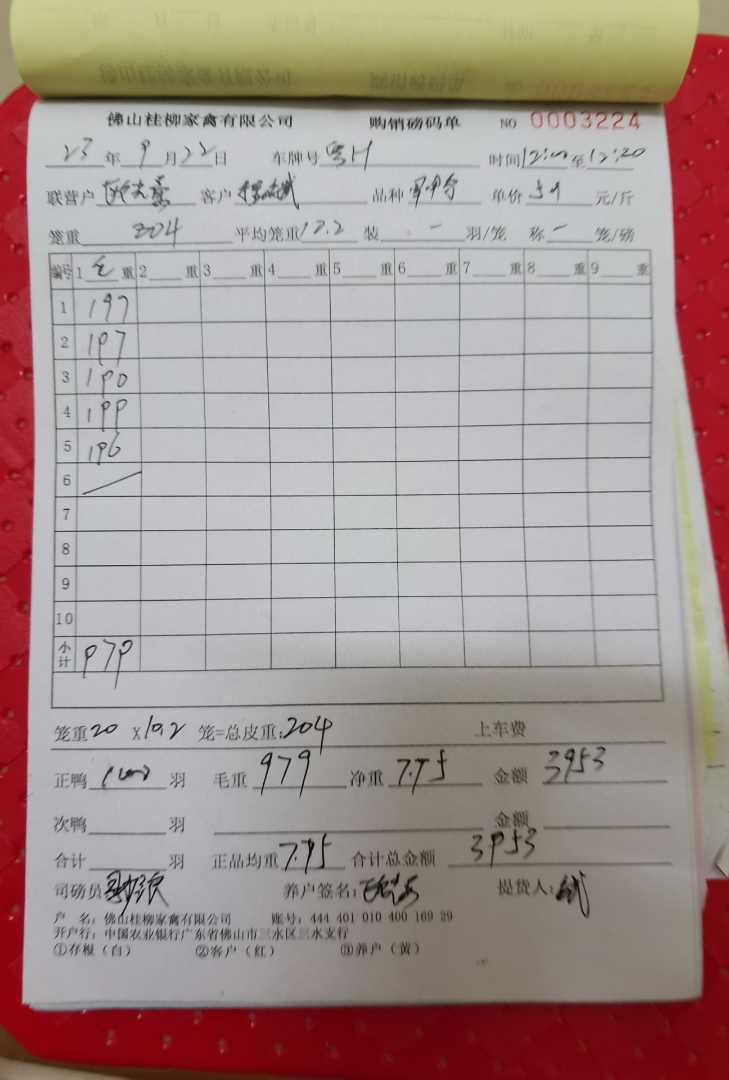 佛山桂柳家禽有限公司 购销磅码单 NO 0003224
23 年 9 月 22 日 车牌号 粤H 时间 12:00 至 12:20
联营户 客户 品种 单价 5.9 元/斤
笼重 204 平均笼重 10.2 装 - 羽/笼 称 - 笼/磅
编号 1 毛 重 2 重 3 重 4 重 5 重 6 重 7 重 8 重 9 重
1 197
2 197
3 190
4 199
5 196
6
7
8
9
10
小计 979
笼重 20 X 10.2 笼=总皮重: 204 上车费
正鸭 羽 毛重 979 净重 7.75 金额 3953
次鸭 羽 金额
合计 羽 正品均重 7.75 合计总金额 3953
司磅员 养户签名: 提货人:
户 名: 佛山桂柳家禽有限公司 账号: 444 401 010 400 169 29
开户行: 中国农业银行广东省佛山市三水区三水支行
①存根(白) ②客户(红) ③养户(黄)